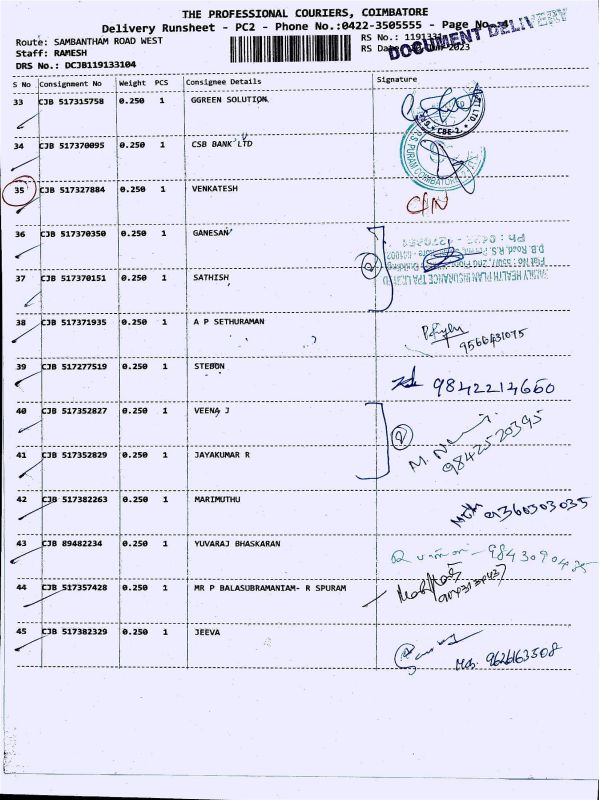 THE PROFESSIONAL COURIERS, COIMBATORE
Delivery Runsheet - PC2 - Phone No.:0422-3505555 - Page No.
Route: SAMBANTHAM ROAD WEST
RS No.: 1191331
Staff: RAMESH
RS Date 2023
DOCUMENT DELIVERY
DRS No.: DCJB119133104
S No Consignment No Weight PCS Consignee Details Signature
33 CJB 517315758 0.250 1 GGREEN SOLUTION
34 CJB 517370095 0.250 1 CSB BANK LTD
35 CJB 517327884 0.250 1 VENKATESH C/N
36 CJB 517370350 0.250 1 GANESAN
37 CJB 517370151 0.250 1 SATHISH
38 CJB 517371935 0.250 1 A P SETHURAMAN
39 CJB 517277519 0.250 1 STEBON 9842214660
40 CJB 517352827 0.250 1 VEENA J
41 CJB 517352829 0.250 1 JAYAKUMAR R 9842520395
42 CJB 517382263 0.250 1 MARIMUTHU
43 CJB 89482234 0.250 1 YUVARAJ BHASKARAN
44 CJB 517357428 0.250 1 MR P BALASUBRAMANIAM- R SPURAM
45 CJB 517382329 0.250 1 JEEVA 9626163508